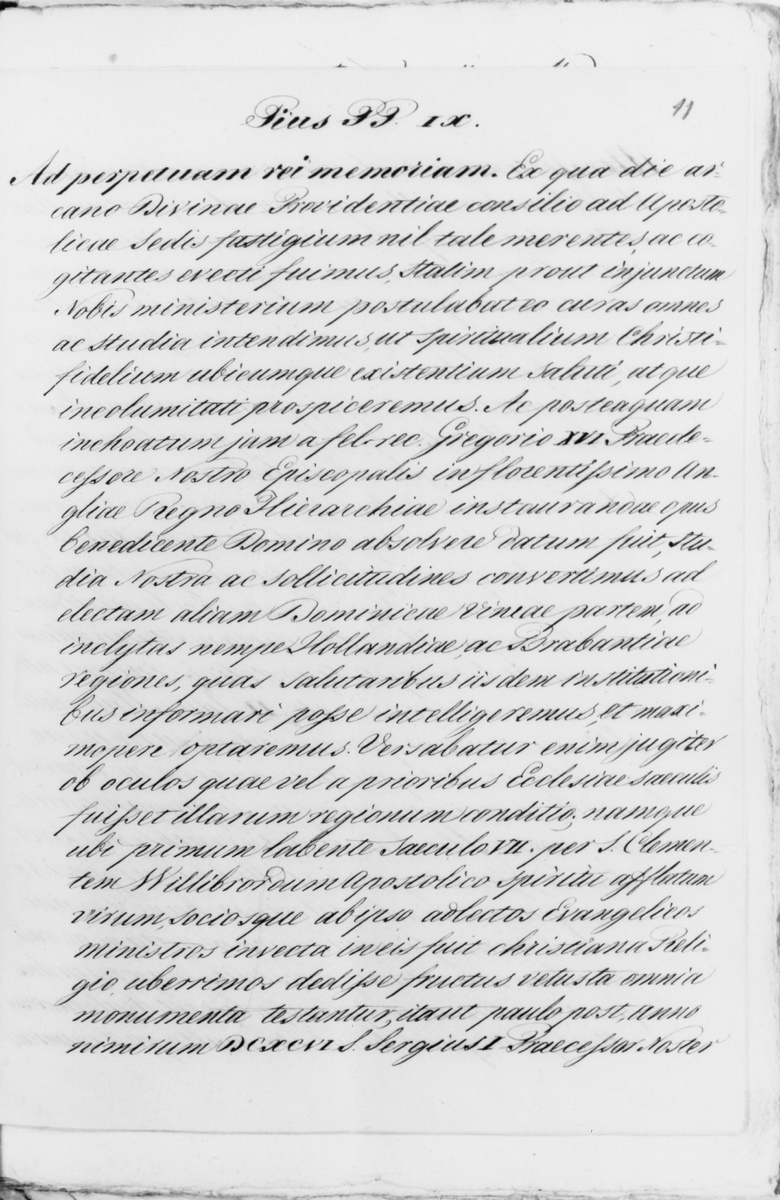 11
Pius PP. IX.
Ad perpetuam rei memoriam. Ex qua die ar-
cano Divinae Providentiae consilio ad Aposto-
licae Sedis fastigium nil tale merentes, ac co-
gitantes evecti fuimus, statim prout injunctum
Nobis ministerium postulabat eo curas omnes
ac studia intendimus, ut spiritualium Christi-
fidelium ubicumque existentium saluti, atque
incolumitati prospiceremus. Ac posteaquam
inchoatum jam a fel. rec. Gregorio XVI Praede-
cessore Nostro Episcopalis in florentissimo An-
gliae Regno Hierarchiae instaurandae opus
benedicente Domino absolvere datum fuit, stu-
dia Nostra ac sollicitudines convertimus ad
electam aliam Dominicae Vineae partem, ad
inclytas nempe Hollandiae, ac Brabantiae
regiones, quas salutaribus iisdem institutioni-
bus informari posse intelligeremus, et maxi-
mopere optaremus. Versabatur enim jugiter
ob oculos quae vel a prioribus Ecclesiae saeculis
fuisset illarum regionum conditio, namque
ubi primum labente Saeculo VII. per S. Clemen-
tem Willibrordum Apostolico spiritu afflatum
virum, sociosque ab ipso adlectos Evangelicos
ministros invecta in eis fuit christiana Reli-
gio, uberrimos dedisse fructus vetusta omnia
monumenta testantur, itaut paulo post, anno
nimirum DCXCVI S. Sergius I Praecessor Noster